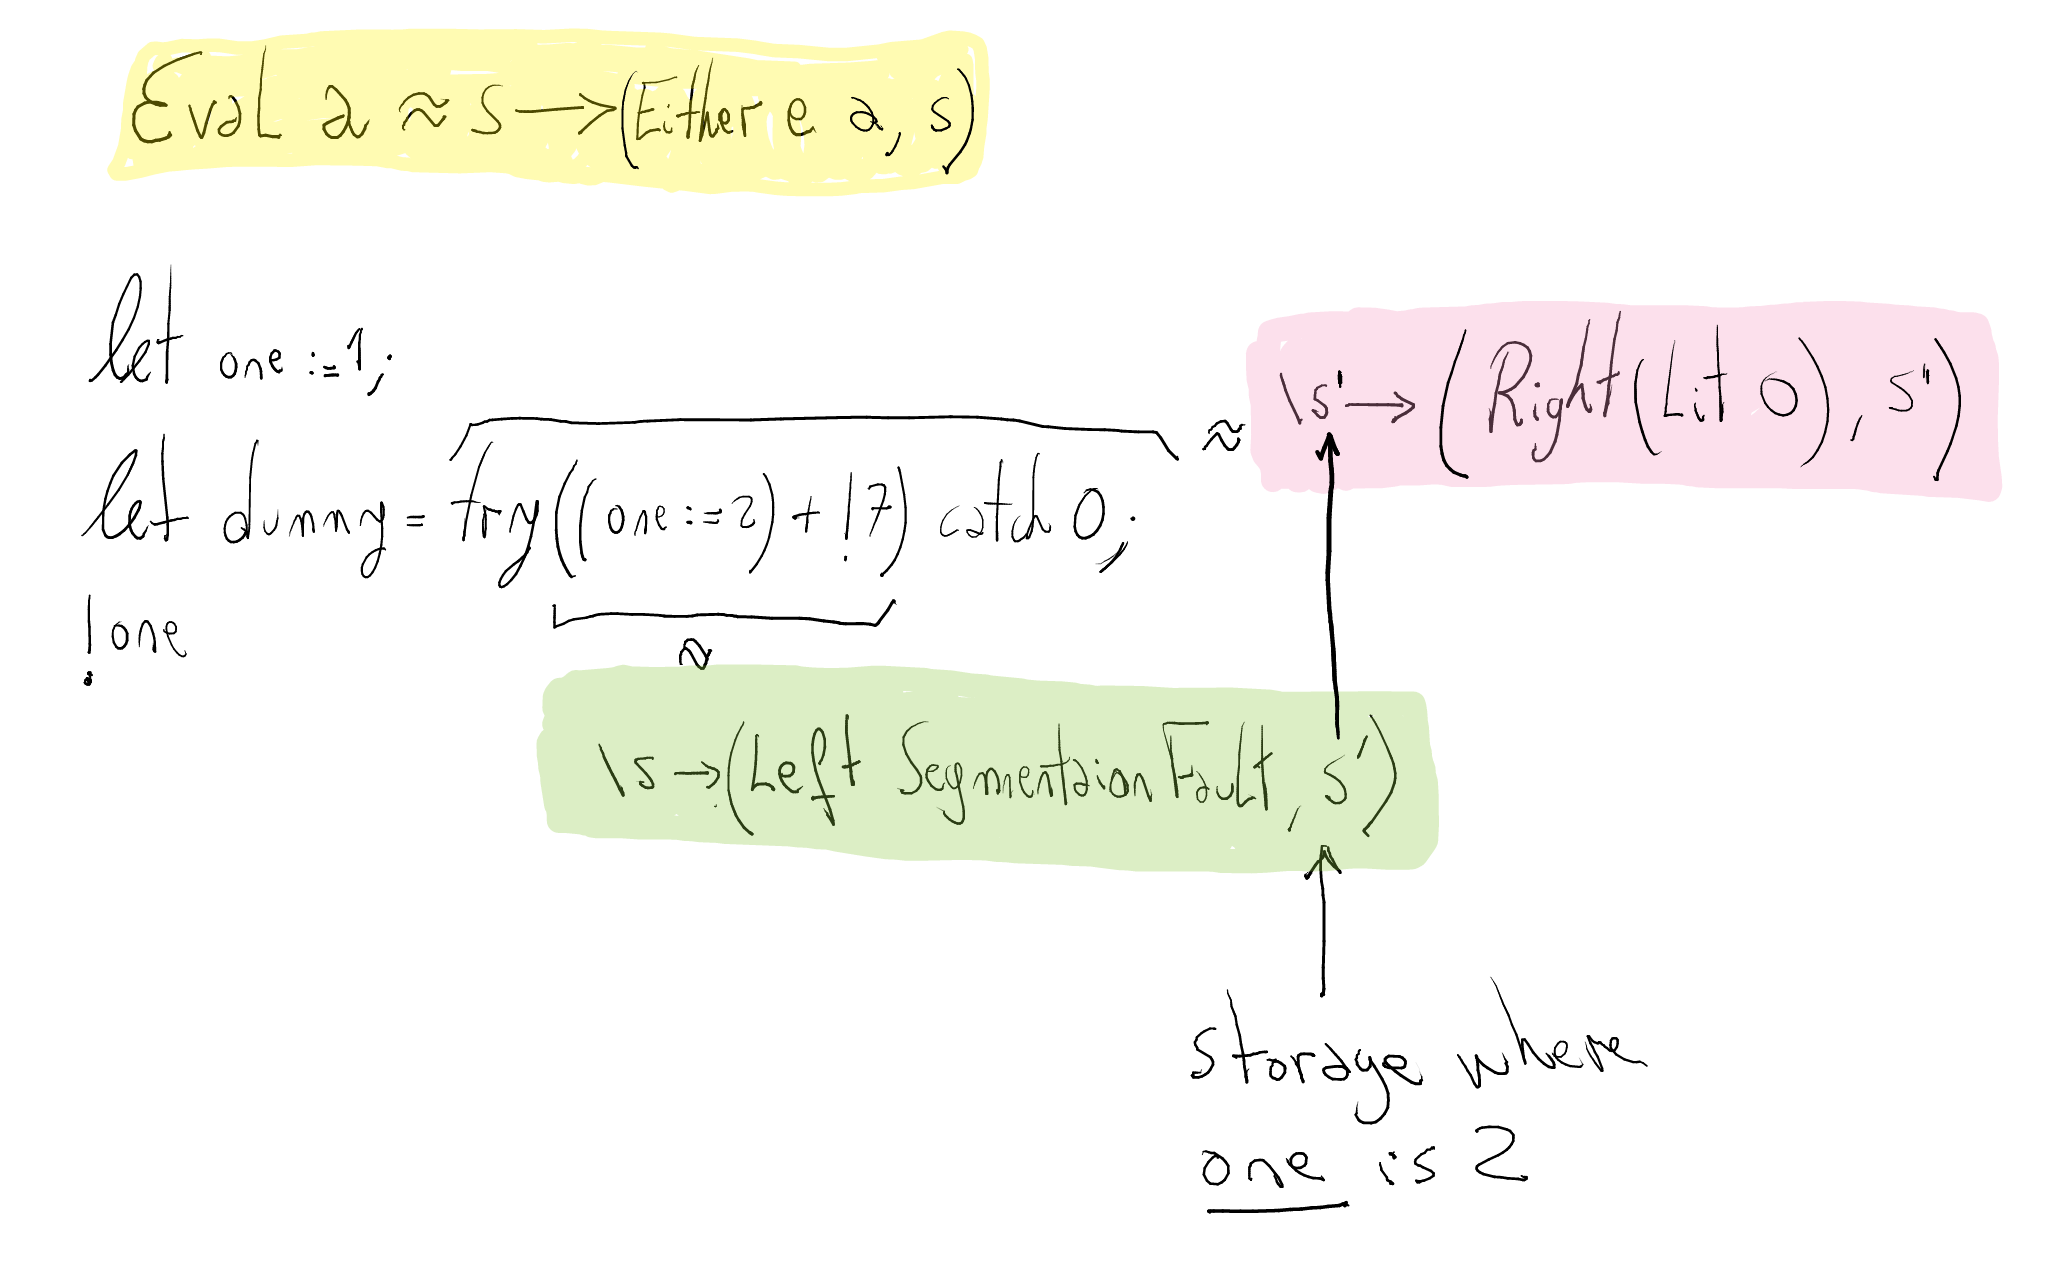 Eval a ≈ s → (Either e a, s)
let one := 1;
≈ \s' → (Right (Lit 0), s'')
let dummy = try((one := 2) + !7) catch 0;
!one
≈
\s → (Left SegmentaionFault, s')
storage where
one is 2